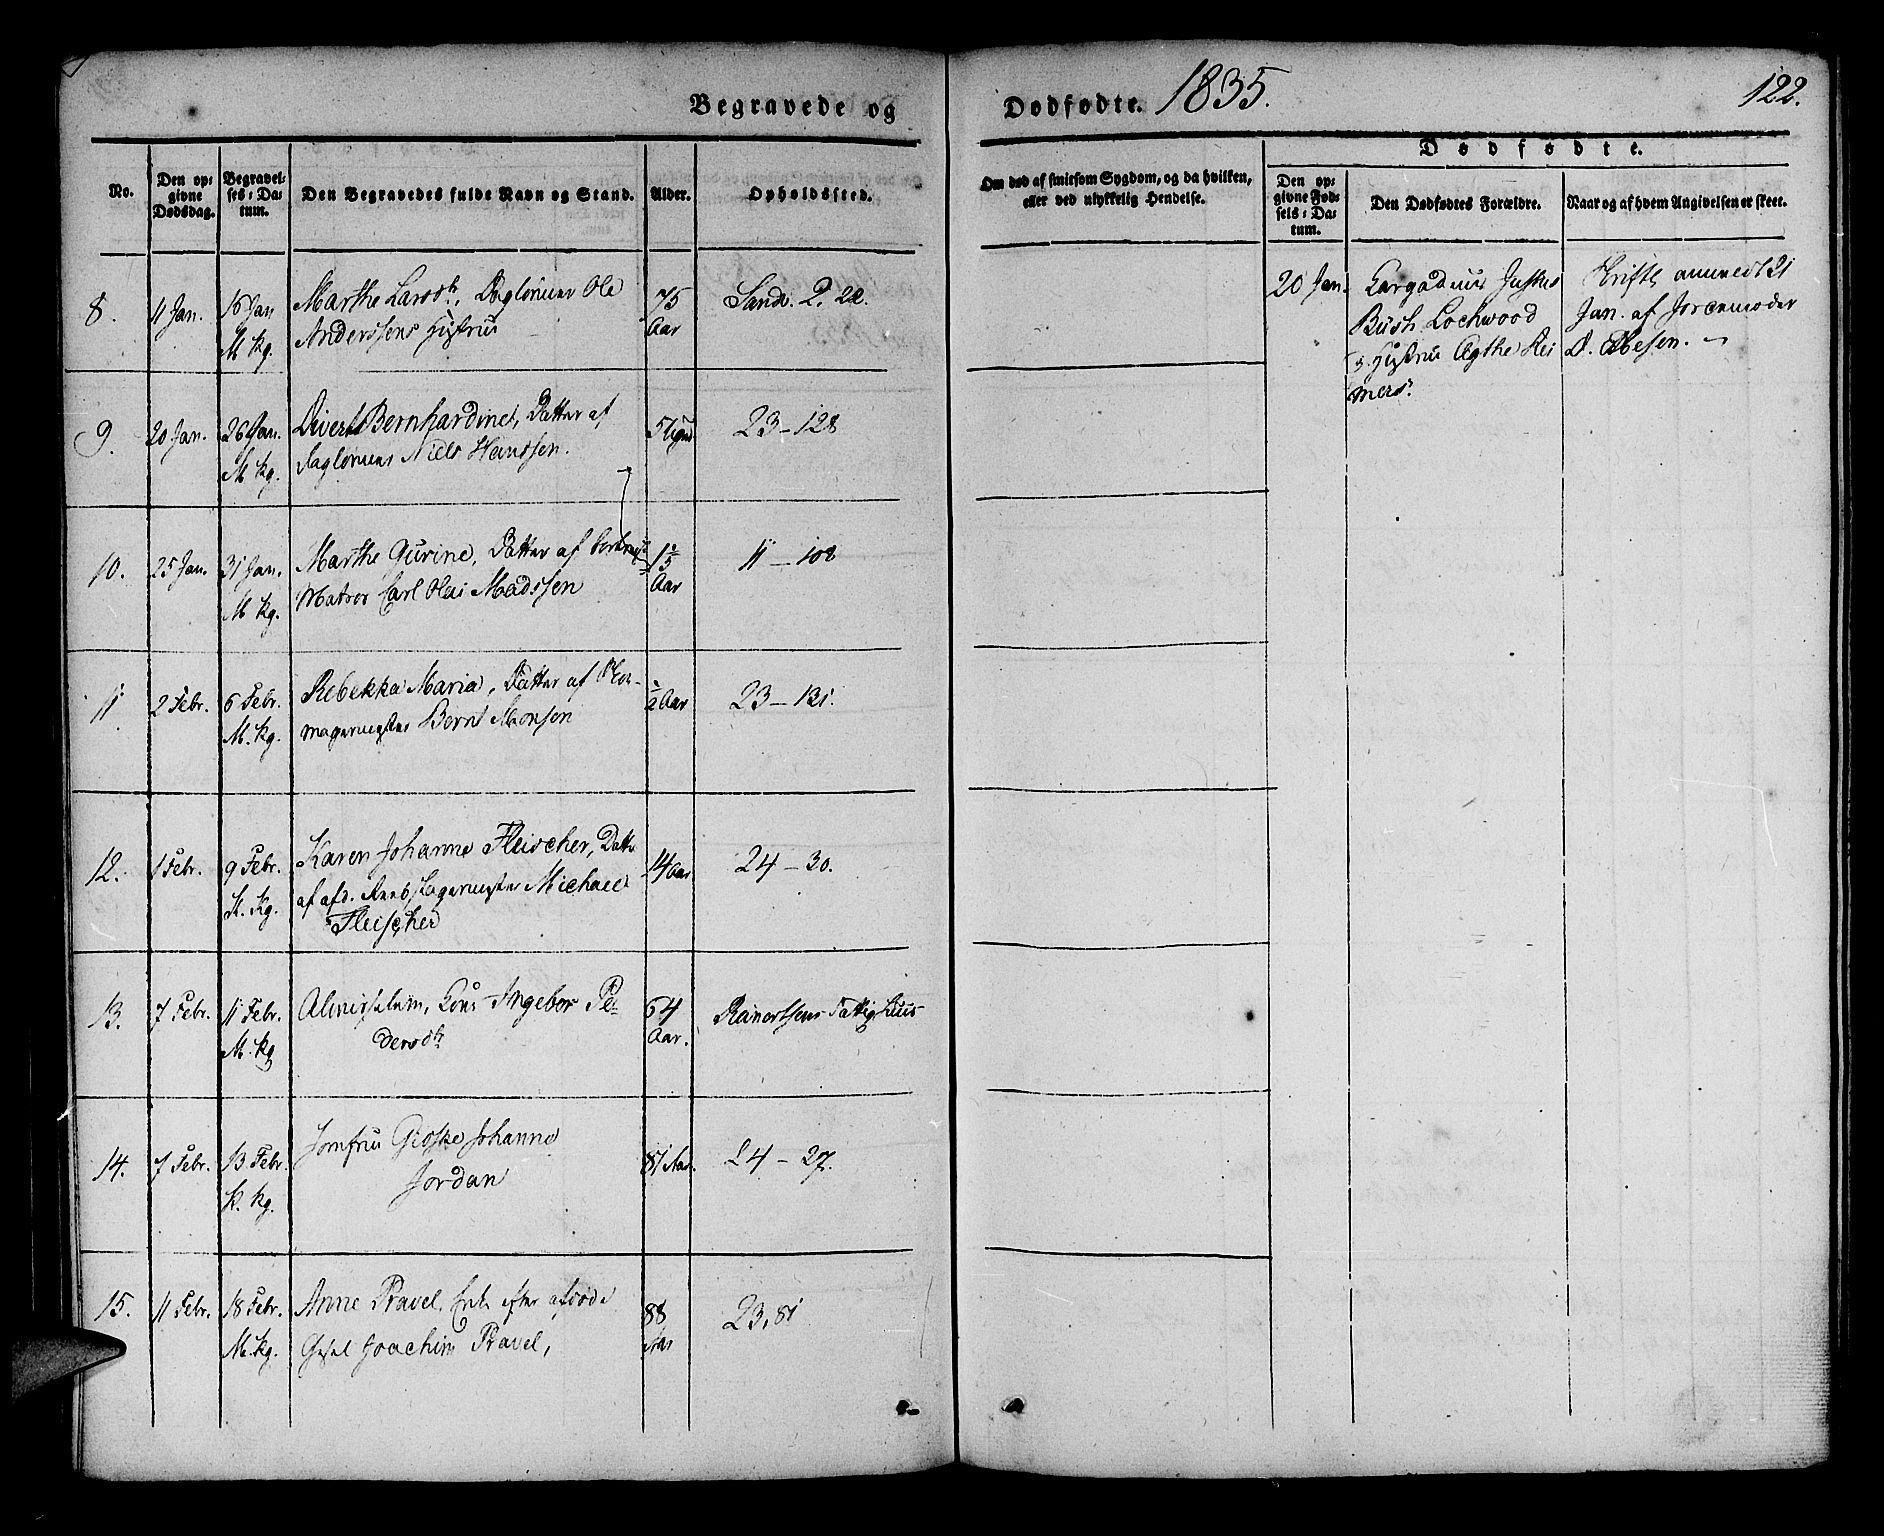 Begravede og
Dødfødte. 1835.
122.
No.
Den op-
givne
Dødsdag.
Begravel-
ses-Da-
tum.
Den Begravedes fulde Navn og Stand.
Alder.
Opholdssted.
Om død af smitsom Sygdom, og da hvilken,
eller ved ulykkelig Hendelse.
Dødfødte.
Den op-
givne Fød-
sels-Da-
tum.
Den Dødfødtes Forældre.
Naar og af hvem Angivelsen er skeet.
8.
11 Jan.
15 Jan
M kg.
Marthe Larsdr., Daglønner Ole
Anderssens Hustrue
75
Aar
Sandv. 2. 22.
20 Jan.
Justus
Bush Lochwood
Hustrue Agthe Rei
mers.
Skriftl anmeldt 21
Jan. af Jordemoder
9.
20 Jan.
26 Jan.
M kg.
Bernhardine, Datter af
Daglønner Niels Hanssen.
5 Uger
23 - 128
10.
25 Jan.
31 Jan.
M kg.
Marthe Gurine, Datter af
Matros Carl Olai Madssen
Aar
11 - 108
11
2 Febr.
6 Febr.
M. kg.
Rebekka Maria, Datter af Skoe-
magermester Bernt Monsen
½ Aar
23 - 131.
12.
1 Febr.
9 Febr.
K. Kg.
Karen Johanne Fleischer, Datter
af afd. Rebslagermester Michael
Fleischer
14 Aar
24 - 30.
13.
7 Febr.
11 Febr.
M. kg
Almislem, Kone Ingebor Pe-
dersdr.
64
Aar.
Rainertsens Fattighuus
14.
7 Febr.
13 Febr.
K. kg.
Jomfrue Geske Johanne
Jordan
81 Aar.
24 - 27.
15.
11 Febr.
18 Febr.
M. kg.
Anne Pravel, Enke efter afdøde
Joachim Pravel,
88
Aar
23, 81